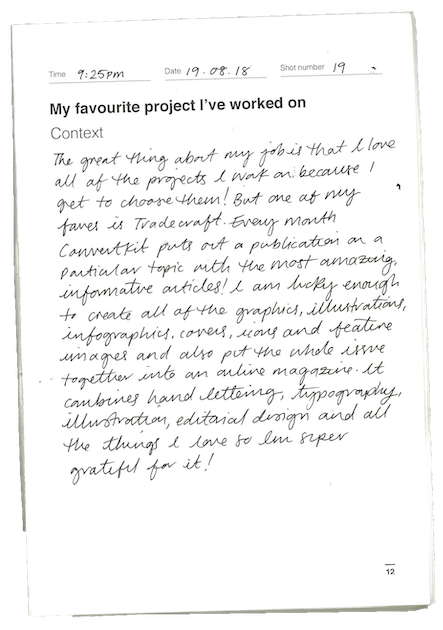 Time 9:25pm Date 19.08.18 Shot number 19
My favourite project I've worked on
Context
The great thing about my job is that I love
all of the projects I work on because I
get to choose them! But one of my
faves is Tradecraft. Every month
ConvertKit puts out a publication on a
particular topic with the most amazing,
informative articles! I am lucky enough
to create all of the graphics, illustrations,
infographics, covers, icons and feature
images and also put the whole issue
together into an online magazine. It
combines hand lettering, typography,
illustration, editorial design and all
the things I love so I'm super
grateful for it!
12